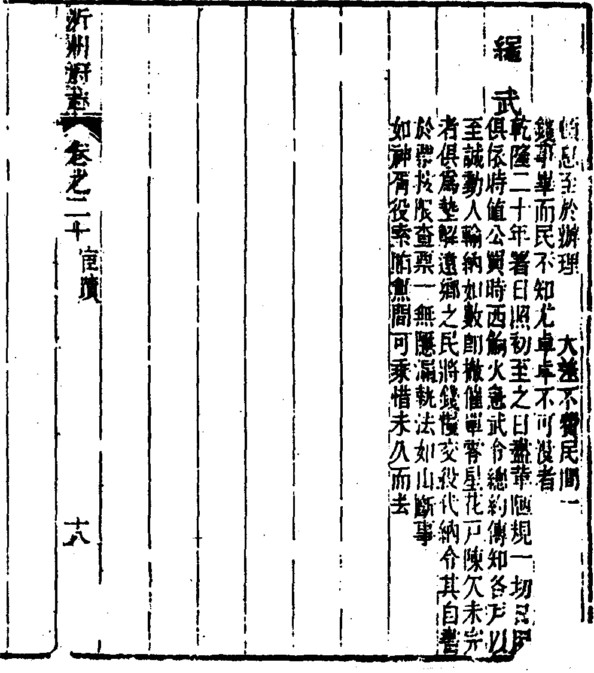 息至於辦理　大差不費民間一
錢事畢而民不知尤卓卓不可沒者
繩武
乾隆二十年署日照初至之日盡革陋規一切日用
俱依時值公買時西餉火急武令總約傳知各戶以
至誠動人輸納如數即撤催單零星花戶陳欠未完
者俱爲墊解遠鄉之民將錢交役代納令其自書
於按限查票一無隱漏執法如山斷事
如神胥役索詐無間可乘惜未久而去
沂州府志
卷之二十
宦蹟
十八